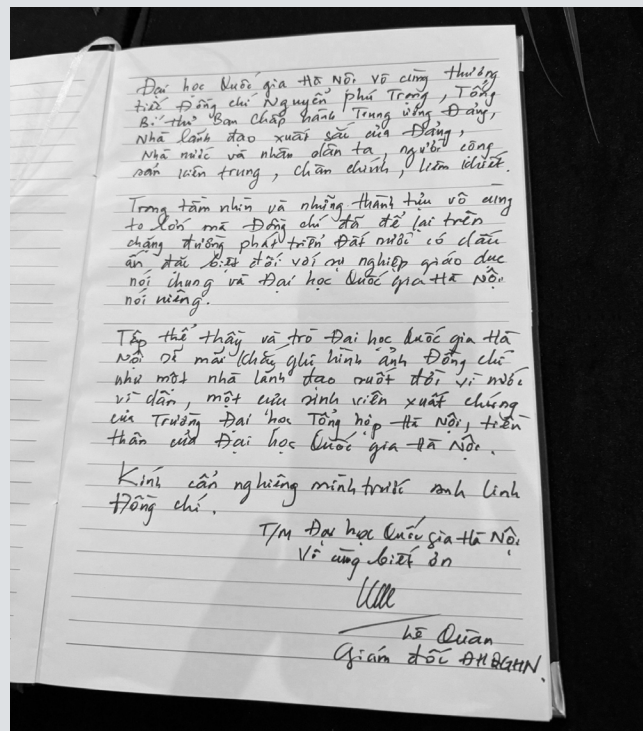 Đại học Quốc gia Hà Nội vô cùng thương
tiếc Đồng chí Nguyễn phú Trọng, Tổng
Bí thư Ban chấp hành Trung ương Đảng,
Nhà lãnh đạo xuất sắc của Đảng,
Nhà nước và nhân dân ta người cộng
sản kiên trung, chân chính, liêm khiết.
Trong tầm nhìn và những thành tựu vô cùng
to lớn mà Đồng chí đã để lại trên
chặng đường phát triển Đất nước có dấu
ấn đặc biệt đối với sự nghiệp giáo dục
nói chung và Đại học Quốc gia Hà Nội
nói riêng.
Tập thể thầy và trò Đại học Quốc gia Hà
Nội sẽ mãi khắc ghi hình ảnh Đồng chí
như một nhà lãnh đạo suốt đời vì nước
vì dân, một cựu sinh viên xuất chúng
của Trường Đại học Tổng hợp Hà Nội, tiền
thân của Đại học Quốc gia Hà Nội.
Kính cẩn nghiêng mình trước anh linh
Đồng chí.
T/M Đại học Quốc gia Hà Nội
Vô cùng biết ơn
Lê Quân
Giám đốc ĐHQGHN.